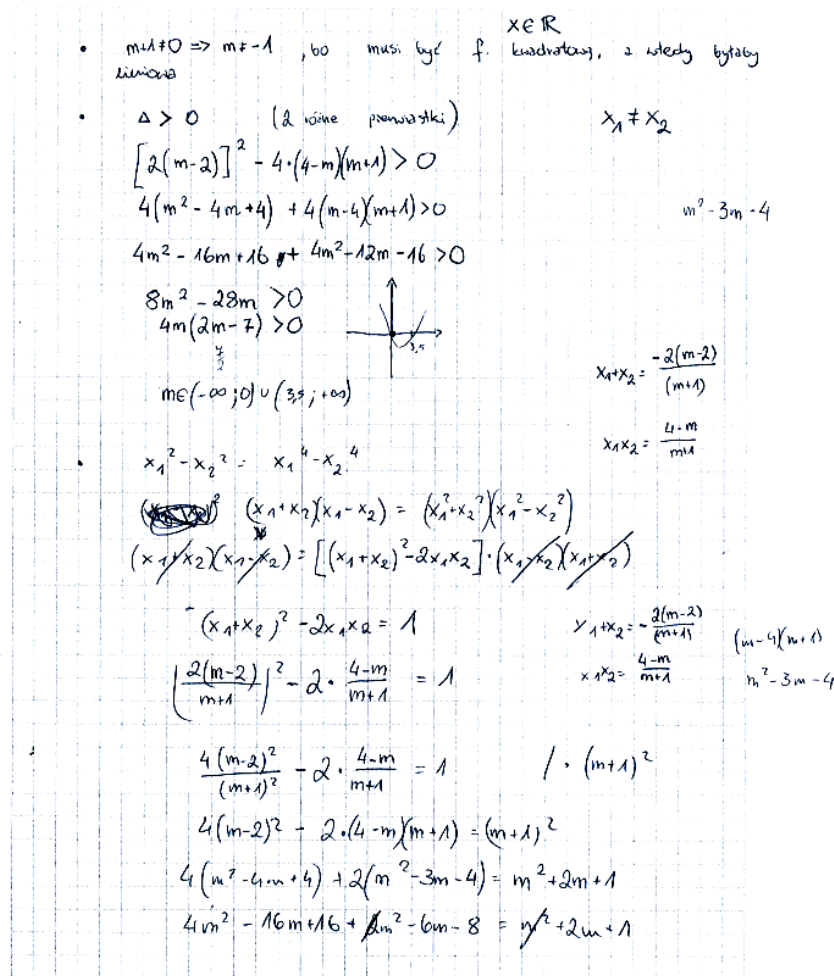 x∈R
• m+1≠0 => m≠-1 , bo musi być f. kwadratową, a wtedy byłaby
liniowa
• Δ > 0 (2 różne pierwiastki) x₁ ≠ x₂
[2(m-2)]² - 4·(4-m)(m+1) > 0
4(m² - 4m+4) + 4(m-4)(m+1)>0 m² - 3m - 4
4m² - 16m+16 + 4m² - 12m - 16 >0
8m² - 28m >0
4m(2m - 7) >0
7/2
3,5
m∈(-∞;0)∪(3,5; +∞)
x₁+x₂ = -2(m-2)/(m+1)
x₁x₂ = 4-m/m+1
• x₁² - x₂² = x₁⁴ - x₂⁴
(x₁+x₂)(x₁-x₂) = (x₁²+x₂²)(x₁²-x₂²)
(x₁+x₂)(x₁-x₂) = [(x₁+x₂)² - 2x₁x₂]·(x₁-x₂)(x₁+x₂)
(x₁+x₂)² - 2x₁x₂ = 1 x₁+x₂ = - 2(m-2)/(m+1) (m-4)(m+1)
(2(m-2)/m+1)² - 2· 4-m/m+1 = 1 x₁x₂ = 4-m/m+1 m² - 3m - 4
4(m-2)²/(m+1)² - 2· 4-m/m+1 = 1 /·(m+1)²
4(m-2)² - 2·(4-m)(m+1) = (m+1)²
4(m² - 4m+4) + 2(m² - 3m - 4) = m²+2m+1
4m² - 16m+16 + 2m² - 6m - 8 = m²+2m+1